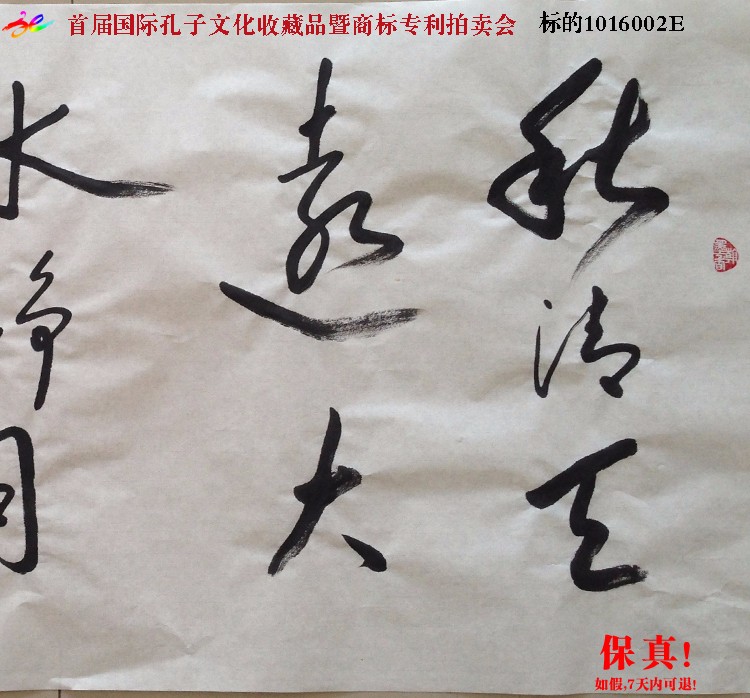 首届国际孔子文化收藏品暨商标专利拍卖会 标的1016002E
秋清天
遠大
水净月
保真!
如假,7天内可退!